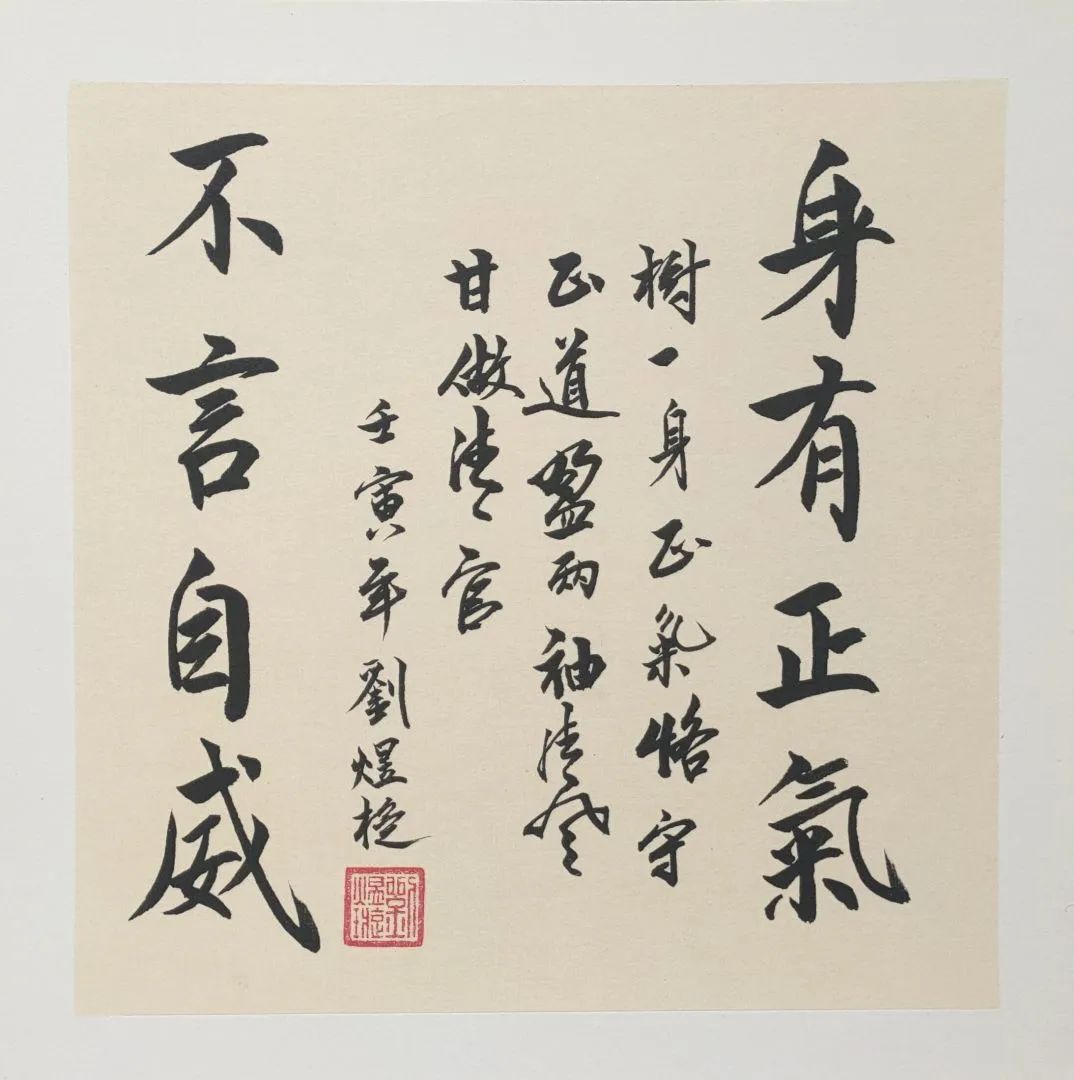 身有正氣
樹一身正氣恪守
正道盈兩袖清風
甘做清官
壬寅年劉煜
不言自威